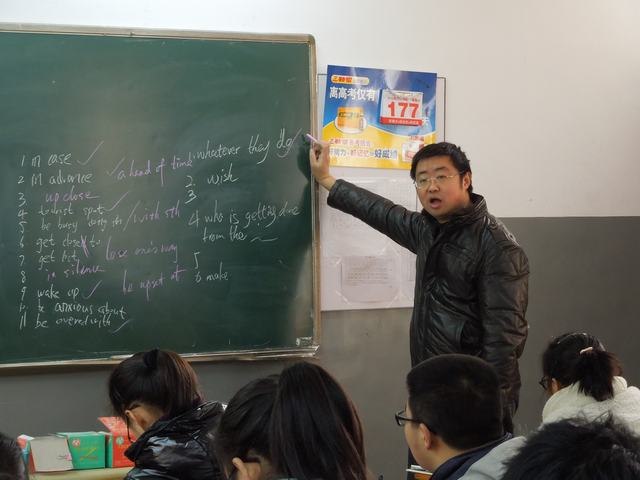 1 in case ✓
2 in advance ✓ ahead of time
3 up close
4 tourist spot ✓
5 be busy doing sth / with sth
6 get close to
7 get lost lose one's way
8 in silence be upset at
9 wake up ✓
be anxious about
11 be covered with ✓
whatever they do
2. wish
3
4 who is getting
from the
5
6 make
离高考仅有
177
天
好成绩